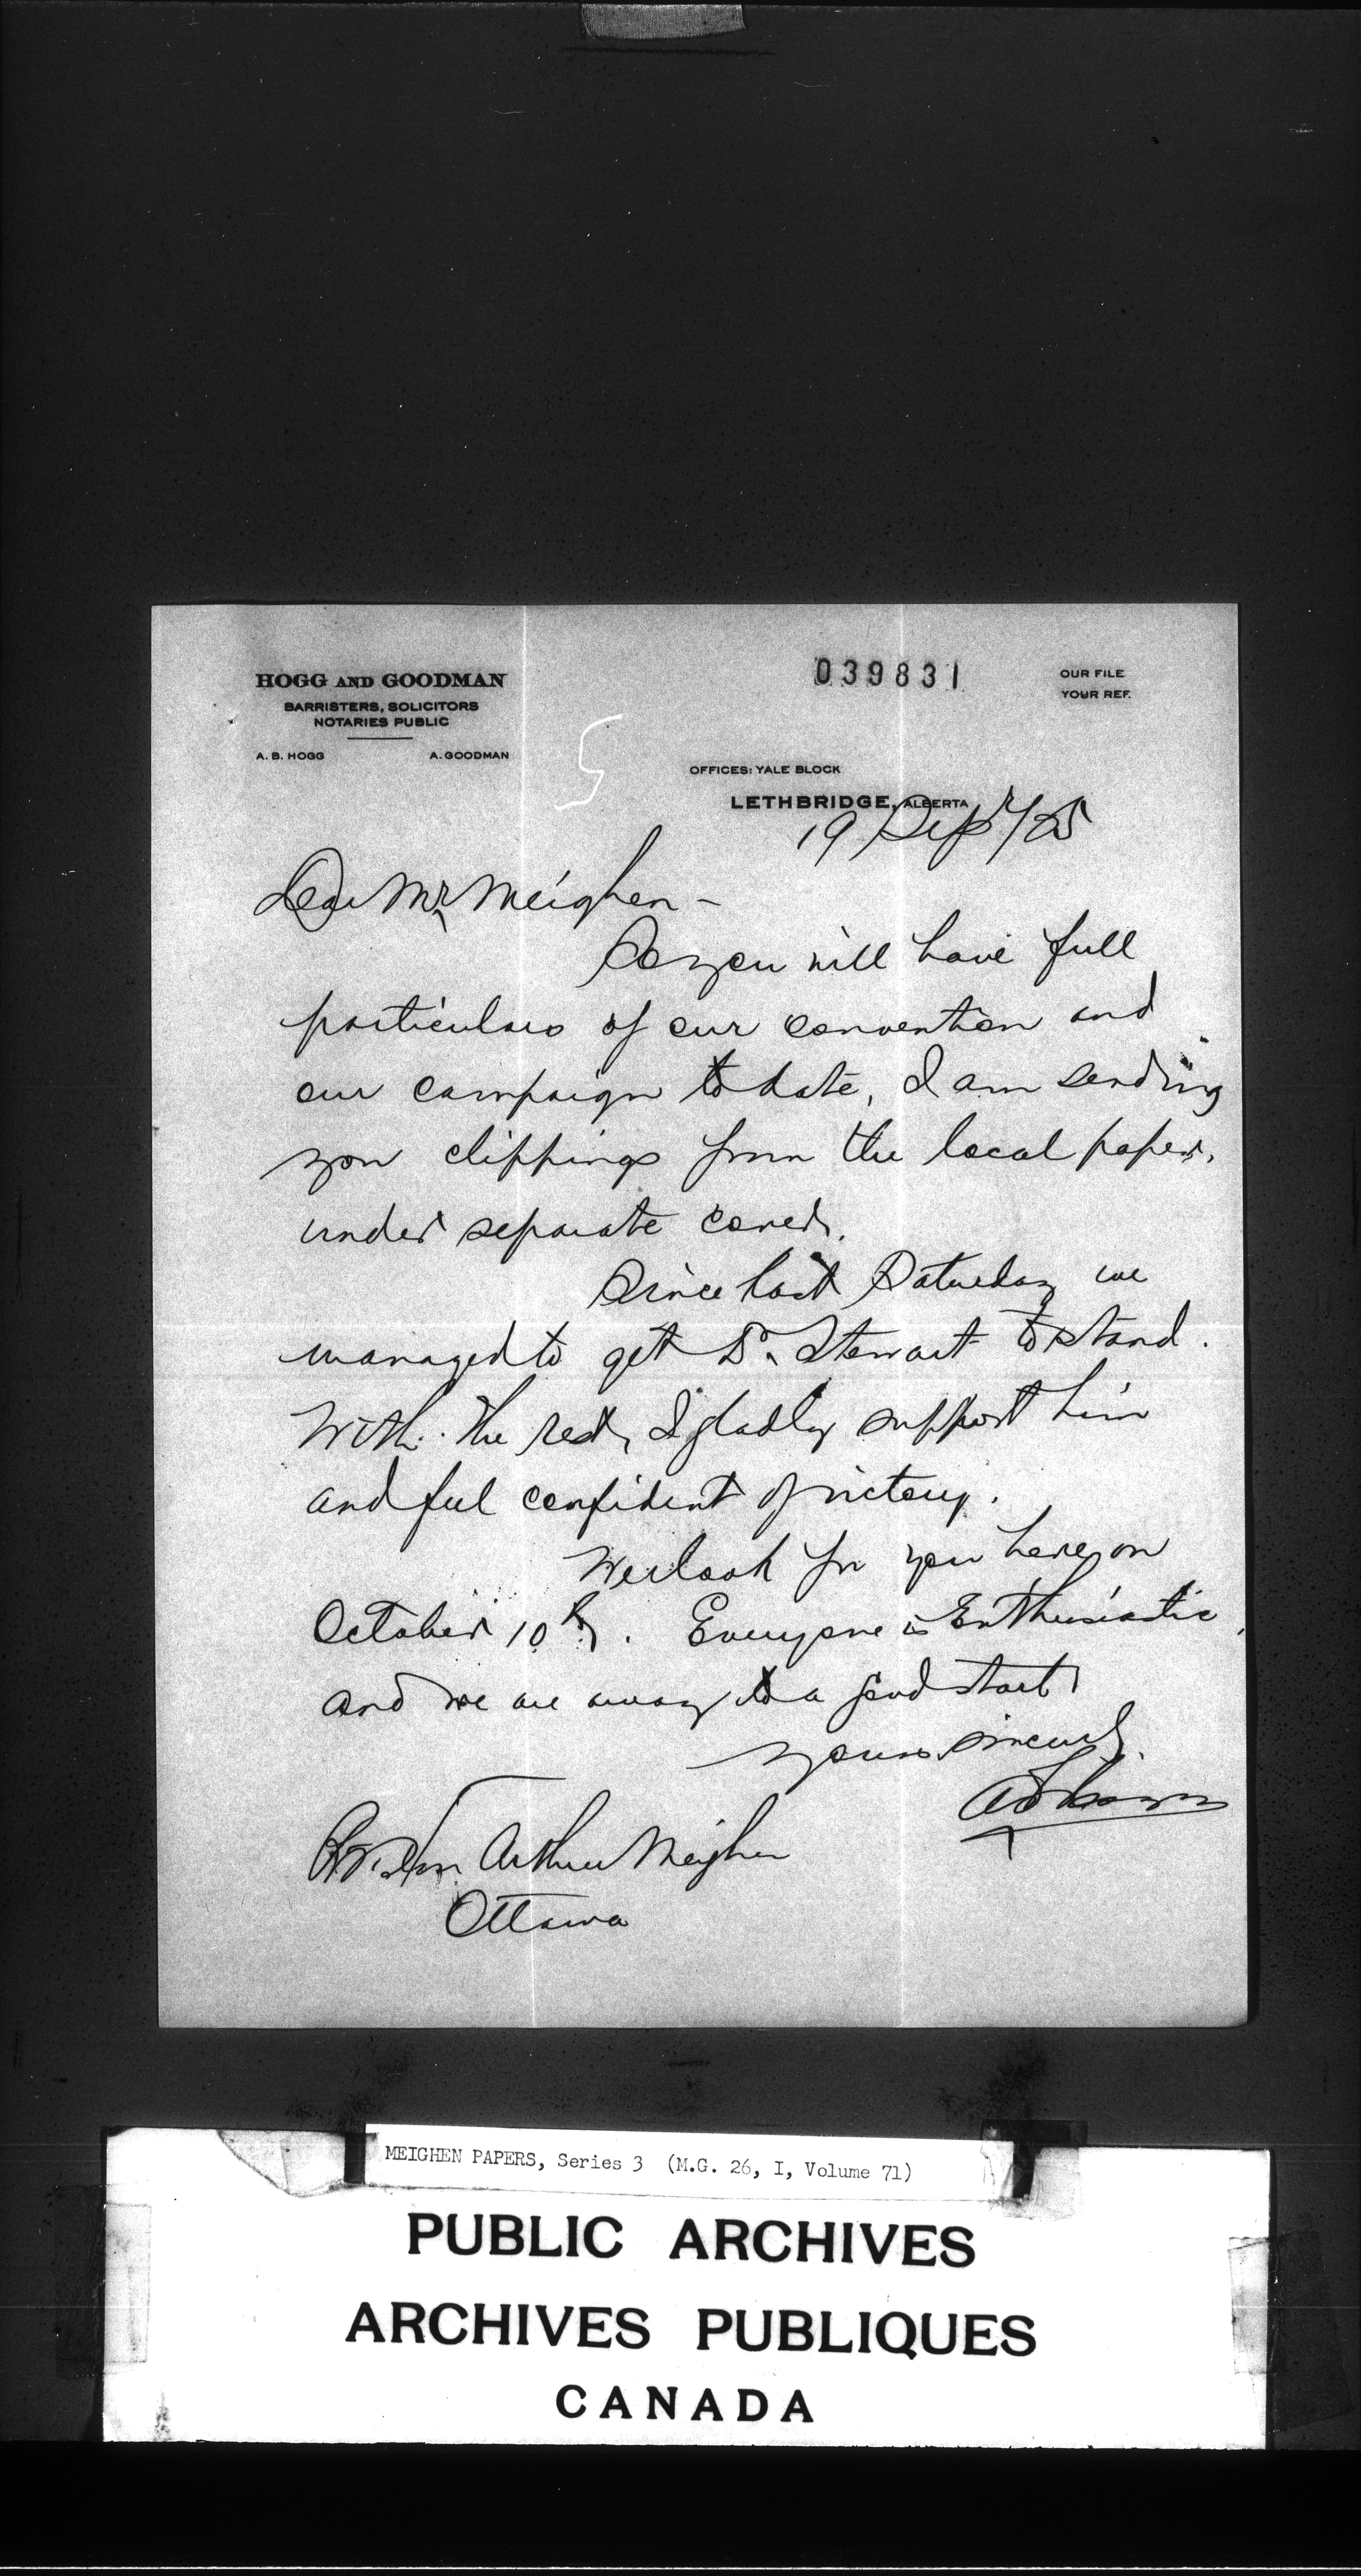 HOGG AND GOODMAN
BARRISTERS, SOLICITORS
NOTARIES PUBLIC
A. B. HOGG A. GOODMAN
039831
OUR FILE
YOUR REF.
OFFICES: YALE BLOCK
LETHBRIDGE, ALBERTA
19 Sept/25
Dear Mr Meighen –
So you will have full
particulars of our convention and
our campaign to date, I am sending
you clippings from the local papers,
under separate cover.
Since last Saturday we
managed to get Dr. Stewart to stand.
With the rest, I gladly support him
and feel confident of victory.
We look for you here on
October 10th. Everyone is Enthusiastic,
and we are away to a good start
yours sincerely.
Rt. Hon. Arthur Meighen
Ottawa
MEIGHEN PAPERS, Series 3 (M.G. 26, I, Volume 71)
PUBLIC ARCHIVES
ARCHIVES PUBLIQUES
CANADA